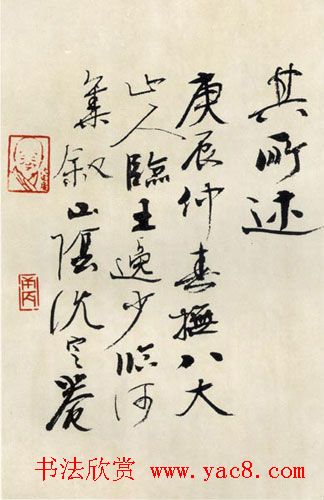 其所述
庚辰仲春橅八大
山人臨王逸少臨河
集叙山陰沈定菴
书法欣赏 www.yac8.com